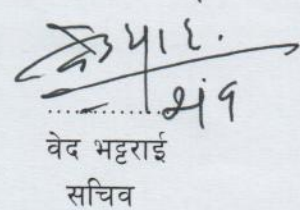 वेद भट्टराई
सचिव